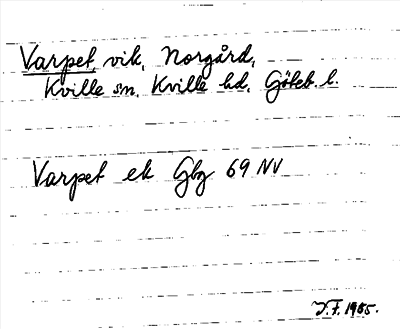 Varpet, vik, Norgård,
Kville sn, Kville hd, Göteb. l.
Varpet ek Gbg 69 NV
J.F. 1955.